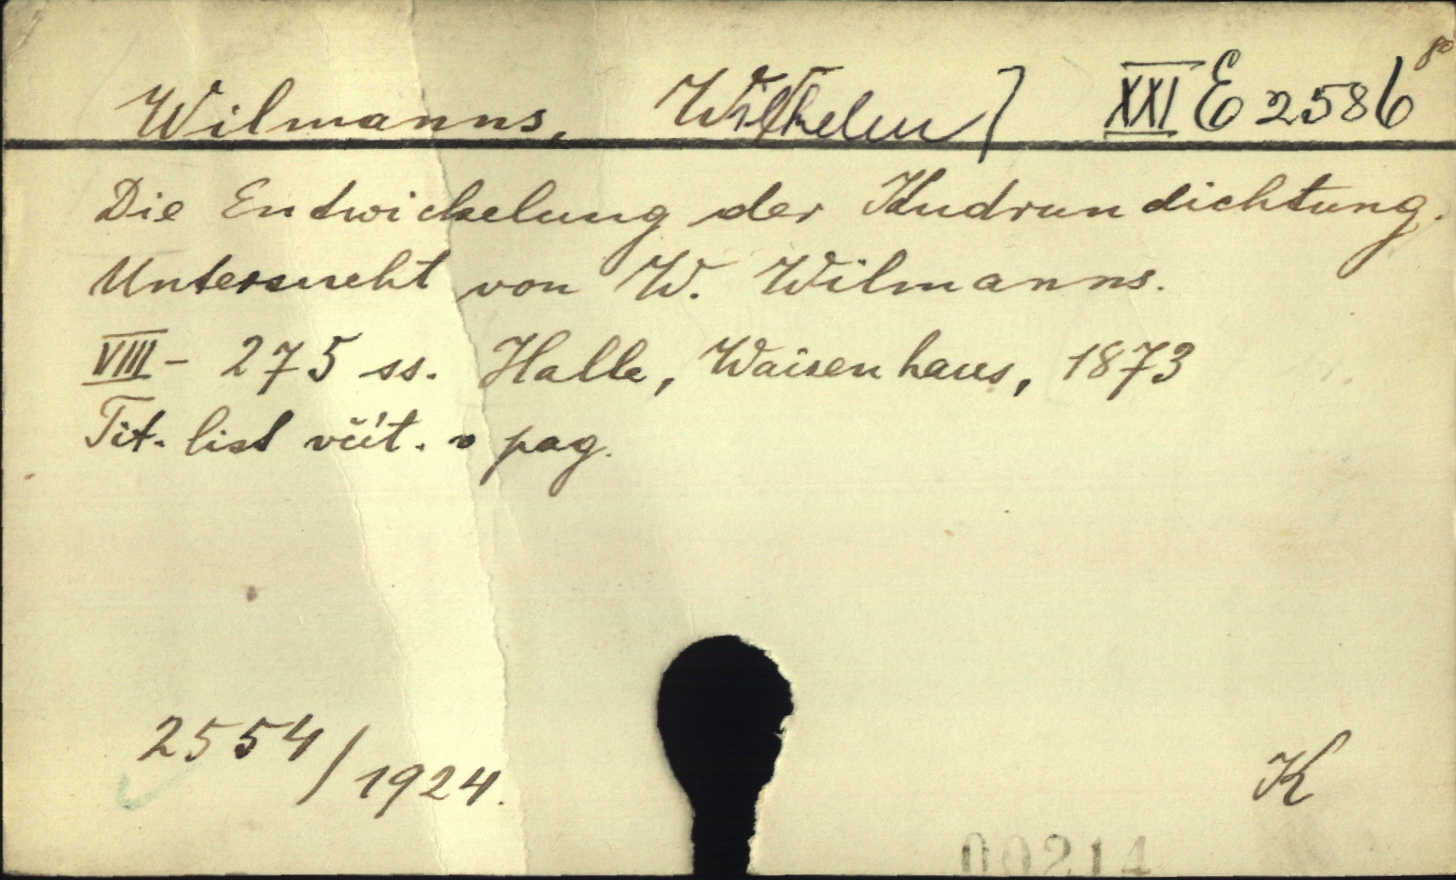 Wilmanns, W[ilhelm] XXI E 2586 8°
Die Entwickelung der Kudrundichtung.
Untersucht von W. Wilmanns.
VIII - 275 ss. Halle, Waisenhaus, 1873
Tit. list včít. v pag.
2554/1924.
K
00214